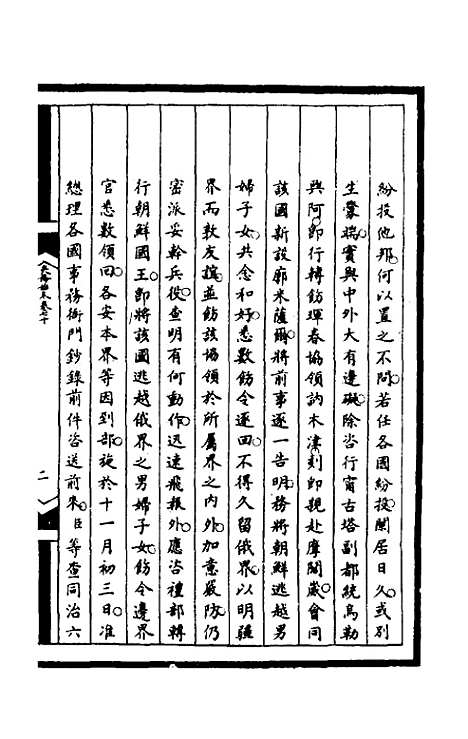 紛投他邦。何以置之不問。若任各國紛投闌居日久。或別
生釁端。實與中外大有邊礙。除咨行甯古塔副都統烏勒
興阿。即行轉飭琿春協領訥木津。刻即親赴摩闊崴。會同
該國新設廓米薩爾。將前事逐一告明。務將朝鮮逃越男
婦子女。共念和好。悉數飭令逐回。不得久留俄界。以明疆
界而敦友誼。並飭該協領於所屬界之內外。加意嚴防。仍
密派妥幹兵役。查明有何動作。迅速飛報外。應咨禮部轉
行朝鮮國王。即將該國逃越俄界之男婦子女。飭令邊界
官悉數領回。各安本界等因到部。旋於十一月初三日。准
總理各國事務衙門鈔錄前件咨送前來。臣等查同治六
二